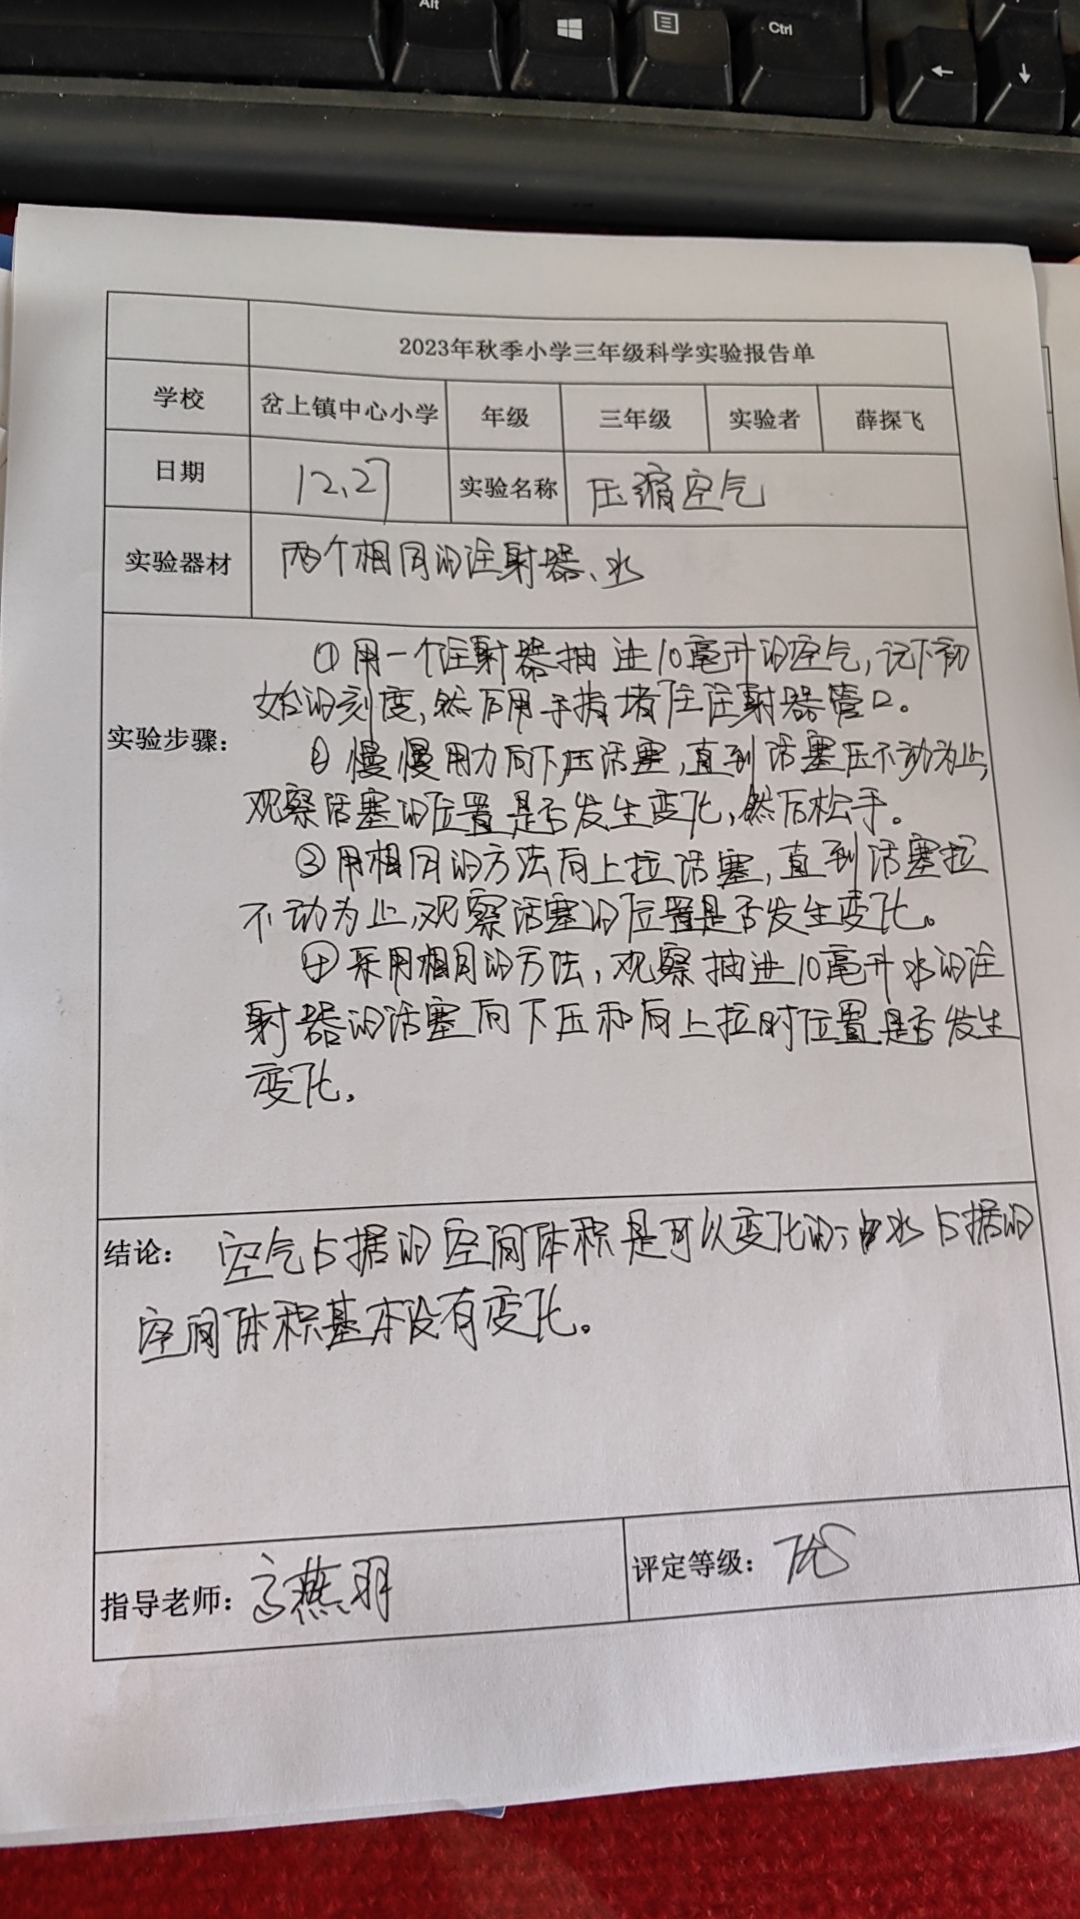 Alt
Ctrl
2023年秋季小学三年级科学实验报告单
学校 岔上镇中心小学 年级 三年级 实验者 薛探飞
日期 12.27 实验名称 压缩空气
实验器材 两个相同的注射器、水
①用一个注射器抽进10毫升的空气,记下初
始的刻度,然后用手指堵住注射器管口。
实验步骤:
②慢慢用力向下压活塞,直到活塞压不动为止,
观察活塞的位置是否发生变化,然后松手。
③用相同的方法向上拉活塞,直到活塞拉
不动为止,观察活塞的位置是否发生变化。
④采用相同的方法,观察抽进10毫升水的注
射器的活塞向下压和向上拉时位置是否发生
变化。
结论: 空气占据的空间体积是可以变化的;水占据的
空间体积基本没有变化。
指导老师:高燕羽 评定等级:优